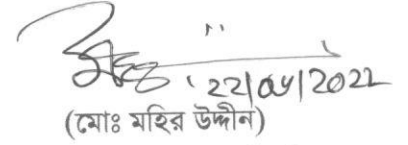 22/05/2022
(মোঃ মহির উদ্দীন)